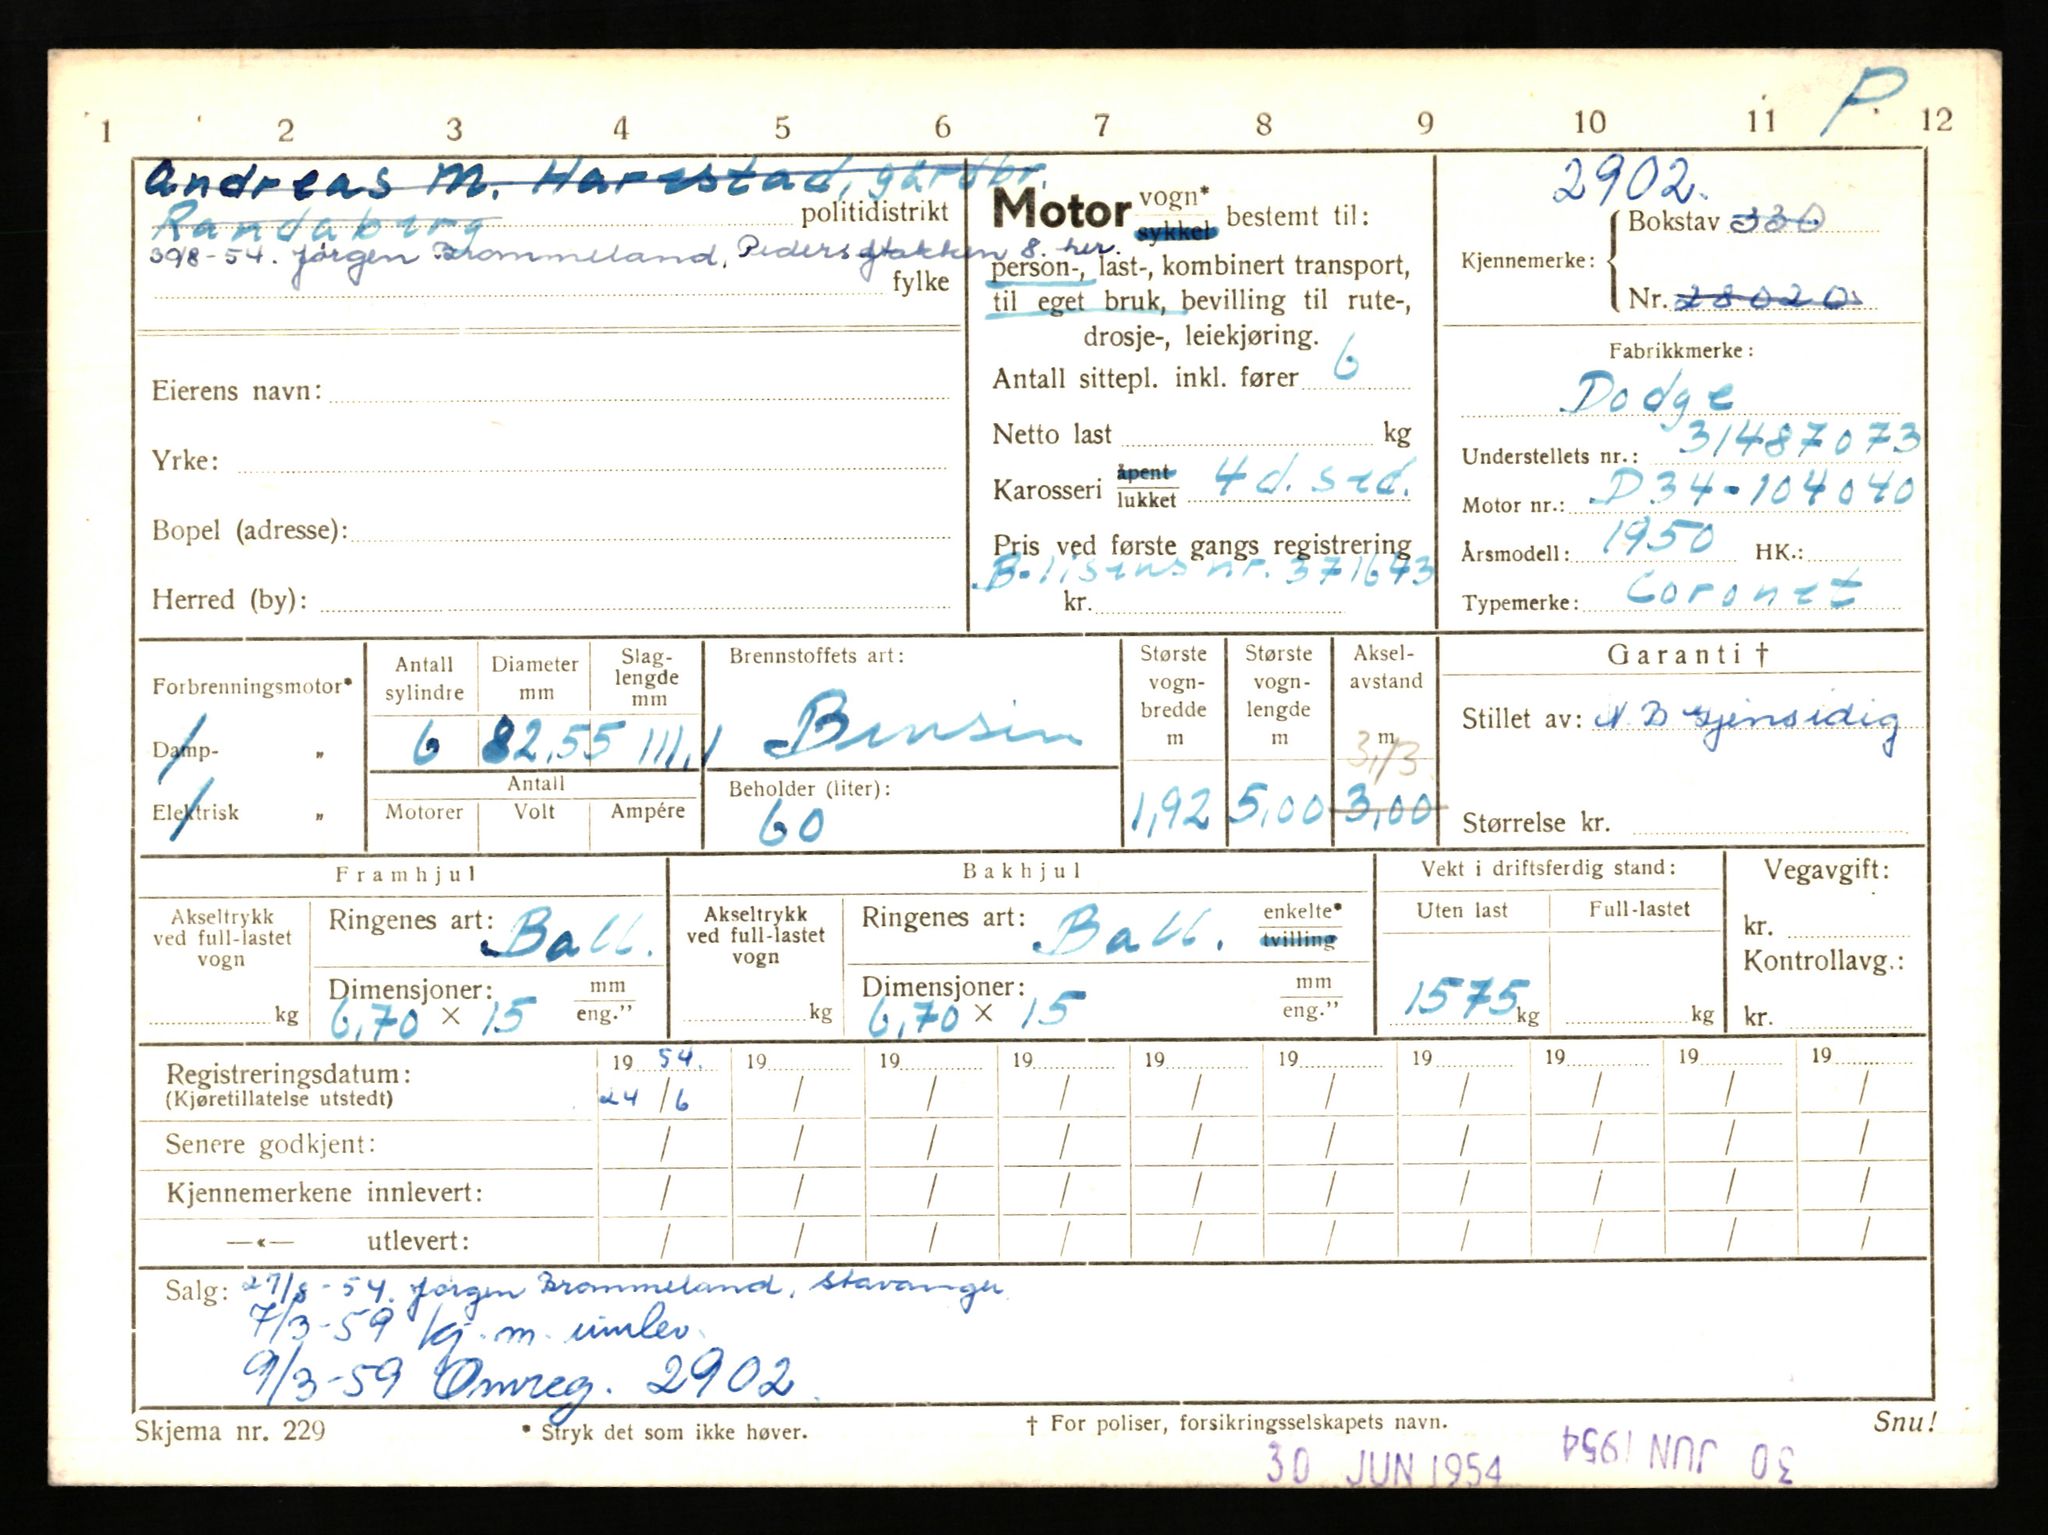 P
1 2 3 4 5 6 7 8 9 10 11 12
Andreas M. Harestad, gårdbr.
Randaberg politidistrikt
30/8-54. Jørgen Brommeland, Pedersgtakken 8. her.
fylke
Eierens navn:
Yrke:
Bopel (adresse):
Herred (by):
Motor vogn* sykkel bestemt til:
person-, last-, kombinert transport,
til eget bruk, bevilling til rute-,
drosje-, leiekjøring.
Antall sittepl. inkl. fører 6
Netto last kg
Karosseri åpent lukket 4 d. sed.
Pris ved første gangs registrering
B-lisens nr. 371673
kr.
2902.
Bokstav 330
Kjennemerke:
Nr. 28020
Fabrikkmerke:
Dodge
Understellets nr.: 31487073
Motor nr.: D34-104040
Årsmodell: 1950 HK.:
Typemerke: Coronet
Forbrenningsmotor*
Damp- „
Elektrisk „
Antall sylindre Diameter mm Slag-lengde mm
6 82,55 111,1
Antall
Motorer Volt Ampére
Brennstoffets art:
Bensin
Beholder (liter):
60
Største vogn-bredde m Største vogn-lengde m Aksel-avstand m
3,13
1,92 5,00 3,00
Garanti †
Stillet av: N. B Gjensidig
Størrelse kr.
Framhjul
Akseltrykk ved full-lastet vogn
kg
Ringenes art: Ball.
Dimensjoner: mm
6,70 × 15 eng.”
Bakhjul
Akseltrykk ved full-lastet vogn
kg
Ringenes art: Ball. enkelte* tvilling
Dimensjoner: mm
6,70 × 15 eng.”
Vekt i driftsferdig stand:
Uten last Full-lastet
1575 kg kg
Vegavgift:
kr.
Kontrollavg.:
kr.
Registreringsdatum: 19 54. 19 19 19 19 19 19 19 19 19
(Kjøretillatelse utstedt) 24 / 6 / / / / / / / / /
Senere godkjent: / / / / / / / / / /
Kjennemerkene innlevert: / / / / / / / / / /
—«— utlevert: / / / / / / / / / /
Salg: 27/8-54. Jørgen Brommeland, Stavanger
7/3-59 kj. m. innlev.
9/3-59 Omreg. 2902.
Skjema nr. 229 * Stryk det som ikke høver. † For poliser, forsikringsselskapets navn. Snu!
30 JUN 1954 30 JUN 1954